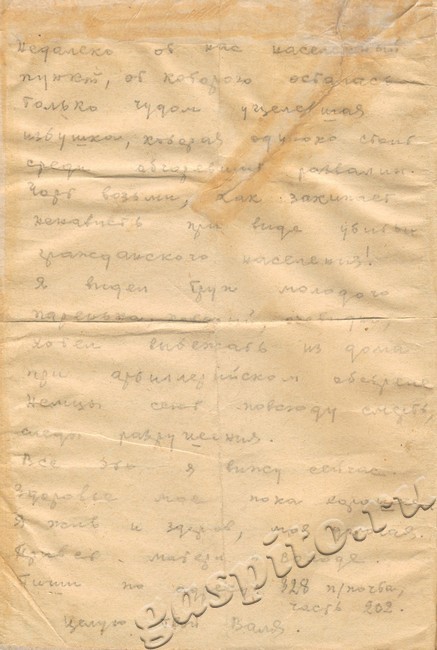 Недалеко от нас населенный
пункт, от которого осталась
только чудом уцелевшая
избушка, которая одиноко стоит
среди обгоревших развалин.
Чорт возьми, как закипает
ненависть при виде убитого
гражданского населения!
Я видел труп молодого
паренька, который, очевидно,
хотел выбежать из дома
при артиллерийском обстреле.
Немцы сеют повсюду смерть,
следы разрушения.
Все это я вижу сейчас.
Здоровье мое пока хорошее.
Я жив и здоров, моя
Привет матери и
Пиши по адресу 828 п/почта,
часть 202.
Целую твой Валя.
gaspito.ru